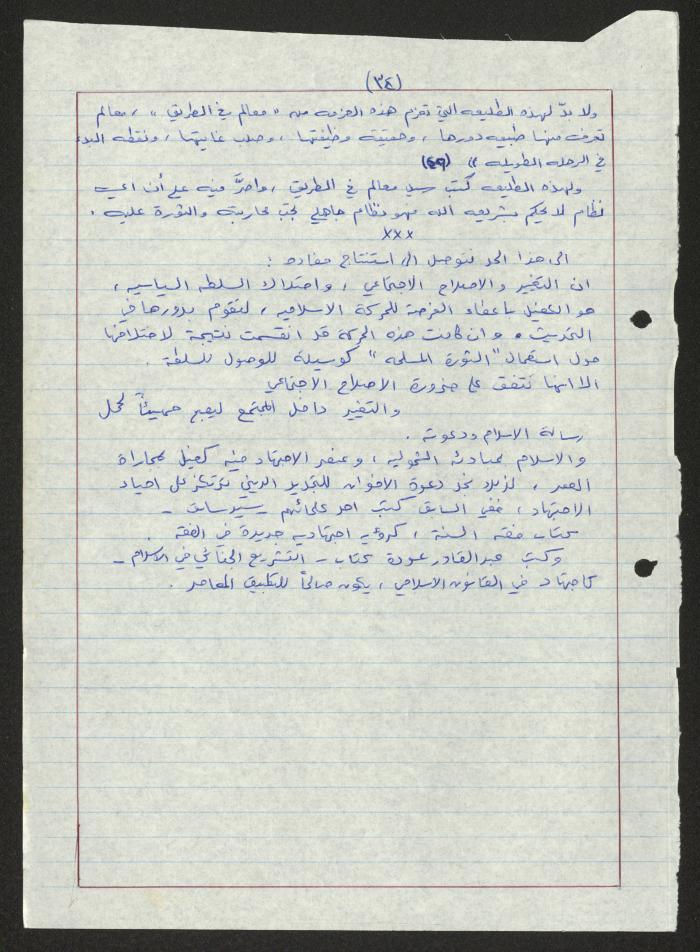 (٣٤)
ولا بدّ لهذه الطليعه التي تعزم هذه العزمه من "معالم في الطريق" ، معالم
تعرف منها طبيعه دورها ، وحقيقة وظيفتها ، وصلب غايتها ، ونقطه البدء
في الرحله الطويله " (٤٩)
ولهذه الطليعه كتب سيد معالم في الطريق ، واصرَّ فيه على أن اي
نظام لا يحكم بشريعه الله فهو نظام جاهلي تجب محاربته والثورة عليه .
×××
الى هذا الحد نتوصل الى استنتاج مفاده :
ان التغيير والاصلاح الاجتماعي ، وامتلاك السلطه السياسيه ،
هو الكفيل باعطاء الفرصة للحركة الاسلاميه ، لتقوم بدورها في
التحديث . وان كانت هذه الحركة قد انقسمت نتيجة لاختلافها
حول استعمال "الثورة المسلحه" كوسيلة للوصول للسلطة .
الا انها تتفق على ضرورة الاصلاح الاجتماعي
والتغيير داخل المجتمع ليصبح مهيئاً لحمل
رسالة الاسلام ودعوته .
والاسلام بمبادئه الشموليه ، وعنصر الاجتهاد فيه كفيل بمجاراة
العصر ، لذلك نجد دعوة الاخوان للتجديد الديني ترتكز على احياء
الاجتهاد ، ففي السابق كتب احد علمائهم - سيد سابق -
كتاب فقه السنة ، كرؤيه اجتهاديه جديدة في الفقه .
وكتب عبد القادر عودة كتاب - التشريع الجنائي في الاسلام -
كاجتهاد في القانون الاسلامي ، يكون صالحاً للتطبيق المعاصر .